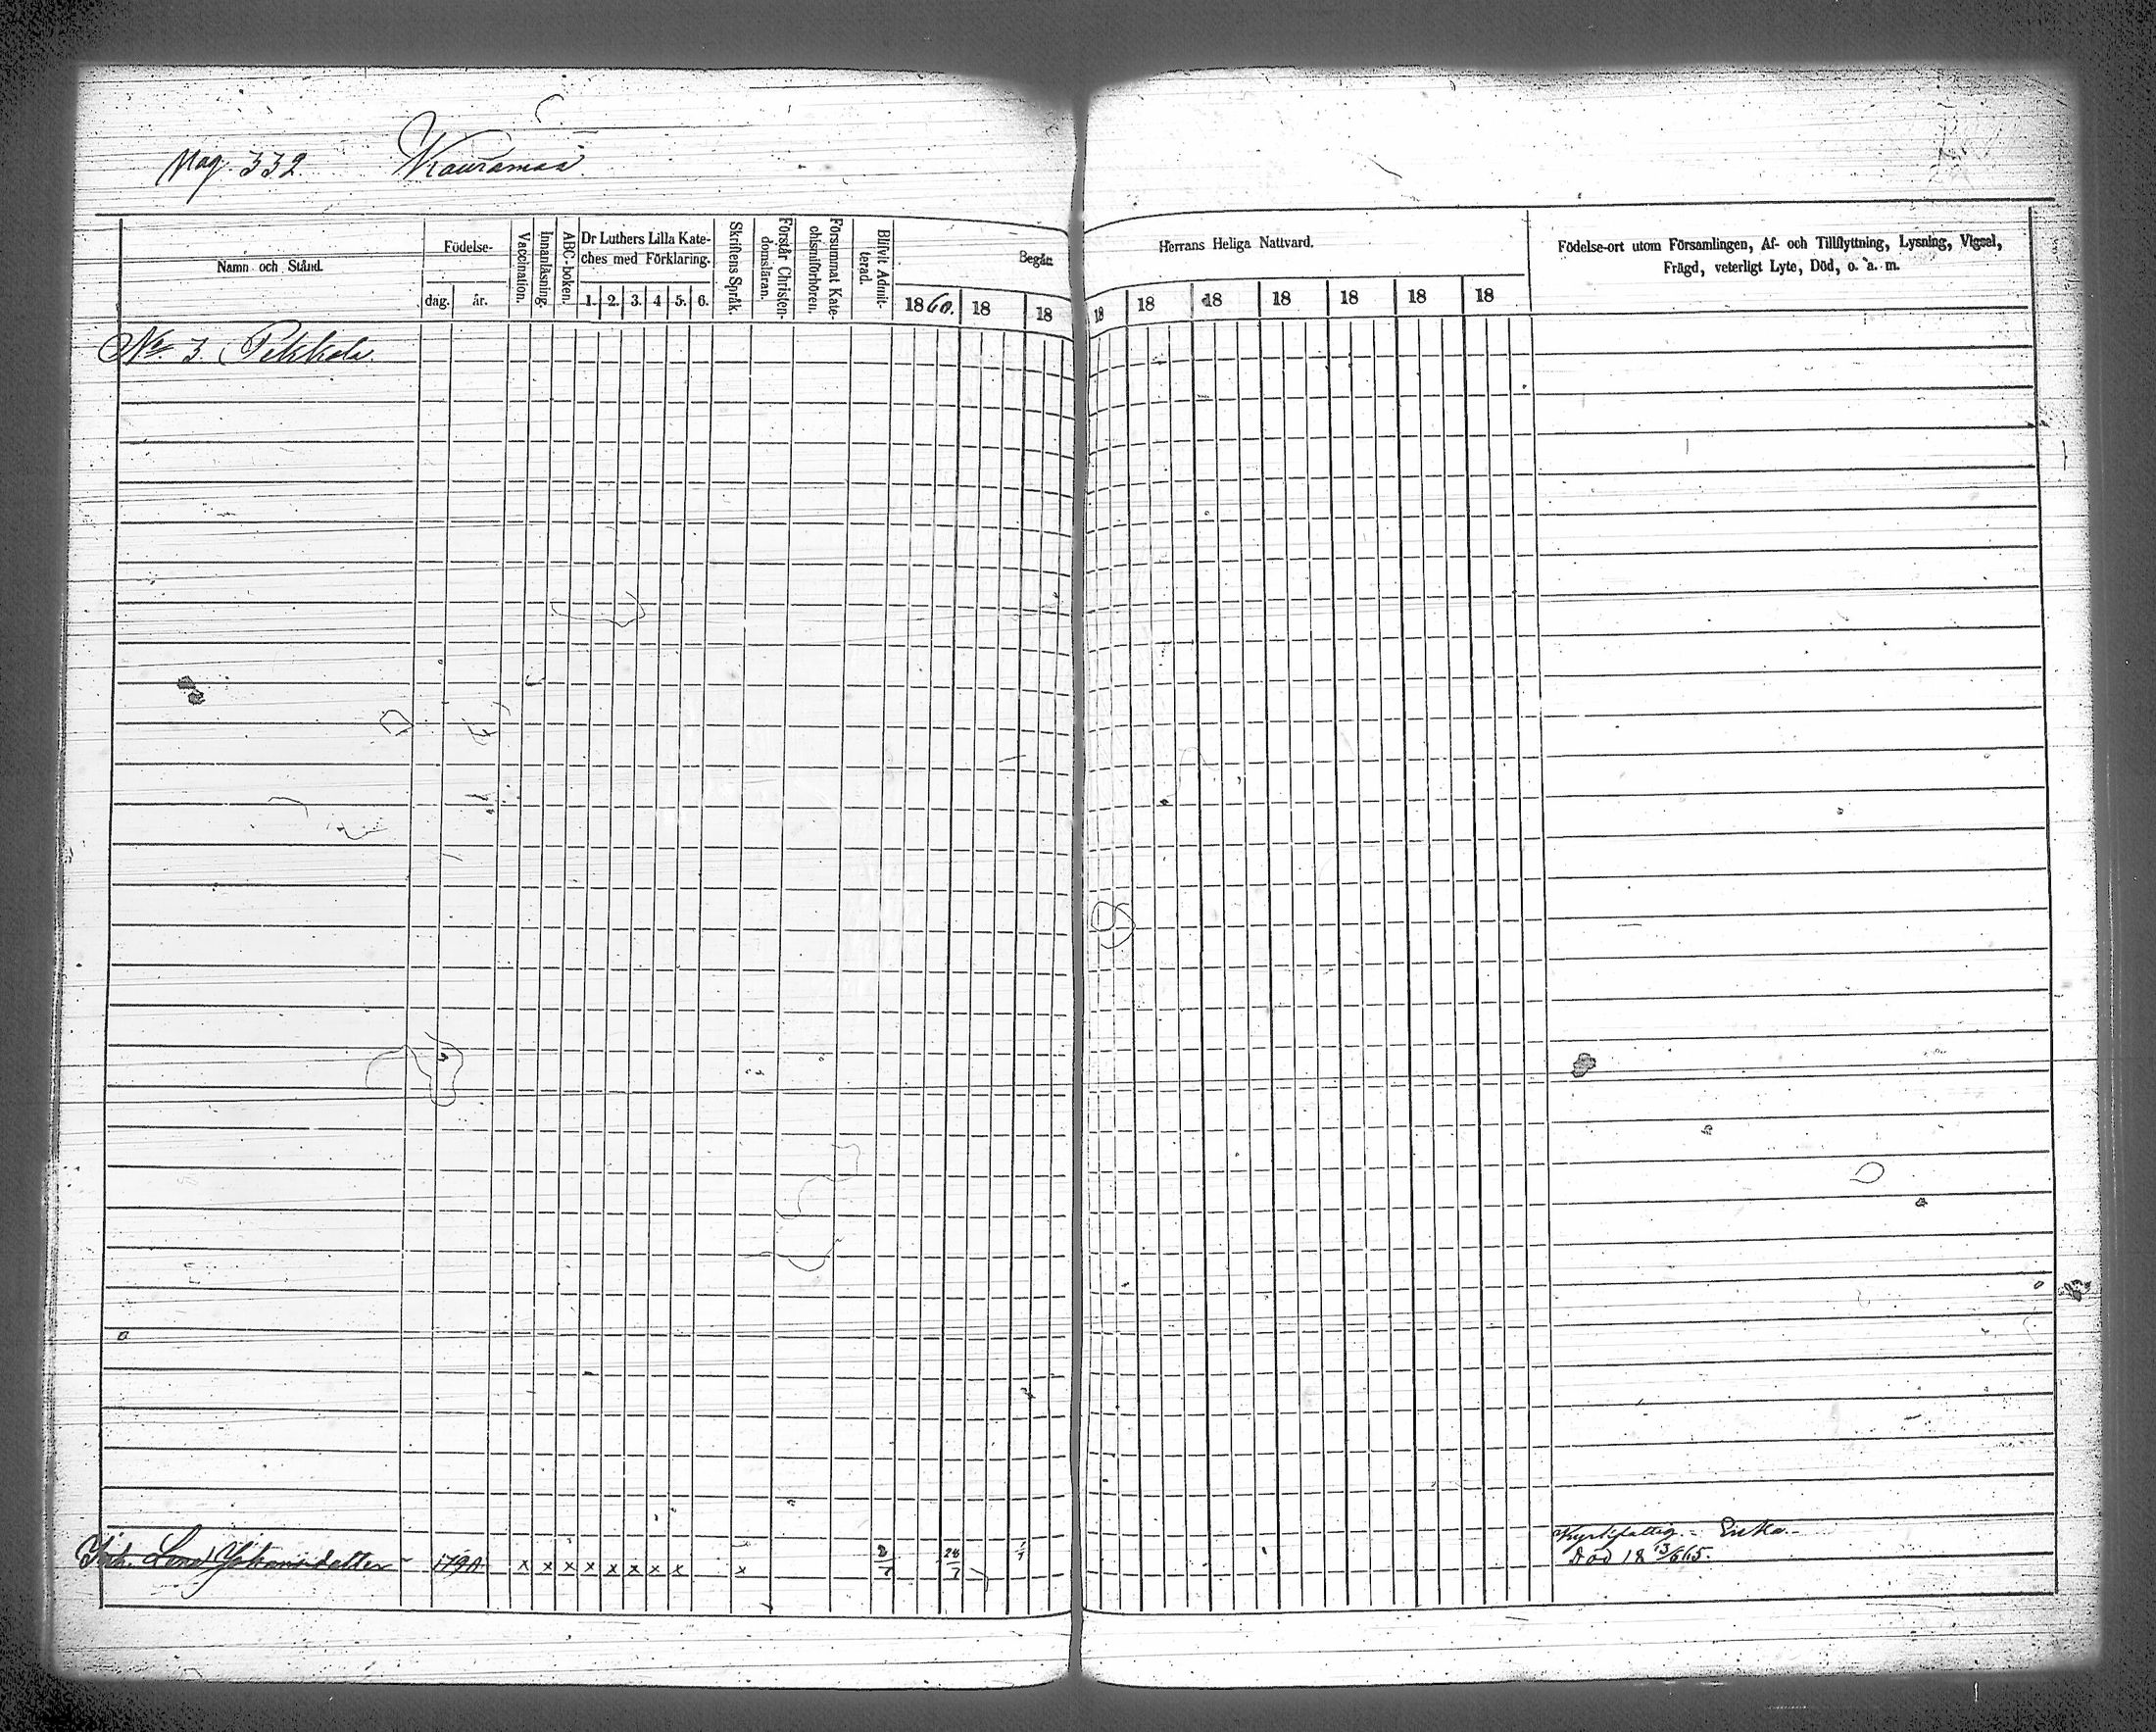 Mag. 332. Wouramaa
Namn och Stånd.
Födelse-
dag. år.
Vaccination.
Innanläsning.
ABC-boken.
Dr Luthers Lilla Kate-
ches med Förklaring.
1. 2. 3. 4 5. 6.
Skriftens Språk.
Förstår Christen-
domsläran.
Försummat Kate-
chismiförhören.
Blifvit Admit-
terad.
Begån
1860. 18 18
Herrans Heliga Nattvard.
18 18 18 18 18 18 18
Födelse-ort utom Församlingen, Af- och Tillflyttning, Lysning, Vigsel,
Frägd, veterligt Lyte, Död, o. a. m.
No 3. Pekkola
Lena Johansdotter 1790 x x x x x x x x x 28/7
Kyrkfattig. - Enka. -
Död 18 13/6 65.